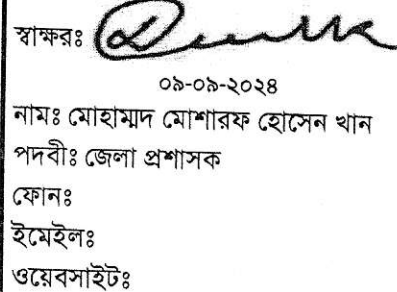 স্বাক্ষরঃ
০৯-০৯-২০২৪
নামঃ মোহাম্মদ মোশারফ হোসেন খান
পদবীঃ জেলা প্রশাসক
ফোনঃ
ইমেইলঃ
ওয়েবসাইটঃ